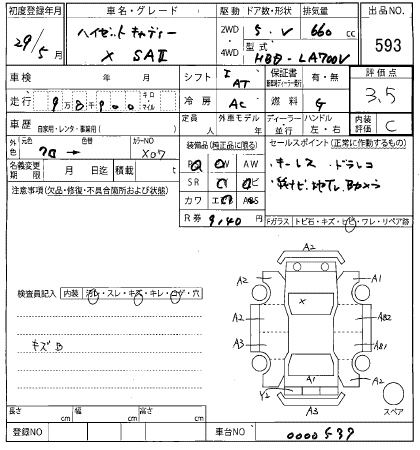 初度登録年月 車名・グレード 駆動 ドア数・形状 排気量 出品NO.
29/5月 ハイゼットキャディー 2WD 5・V 660 cc 593
X SAⅡ 4WD 型式 HBD-LA700V
車検 年 月 シフト I AT 保証書 有・無 評価点
走行 9万8千900 キロ マイル 冷房 AC 燃料 G 3.5
車歴 自家用・レンタ・事業用( ) 定員 外車モデル年 ディーラー 並行 ハンドル 左・右 内装評価 C
外色 元色 色替 カラーNO 装備品(純正品に限る) セールスポイント(正常に作動するもの)
X07 AW ・キーレス ドラレコ
名義変更期限 月 日迄 積載 t SR ナビ Bカメラ
注意事項(欠品・修復・不具合箇所および状態) カワ エアB ABS
R券 9140 Fガラス トビ石・キズ・ヒビ・ワレ・リペア跡
A2
A2 A1
検査員記入 内装 汚レ・スレ・キズ・キレ・コゲ・穴
X
A2 AB2
キズB A3 AB1
A1 A2
Y2
A3 スペア
長さ cm 幅 cm 高さ cm
登録NO 車台NO 0000539